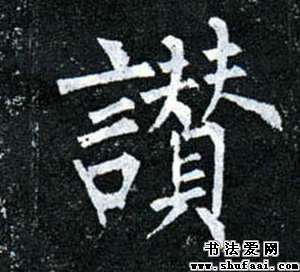 讃
书法爱网
www.shufaai.com